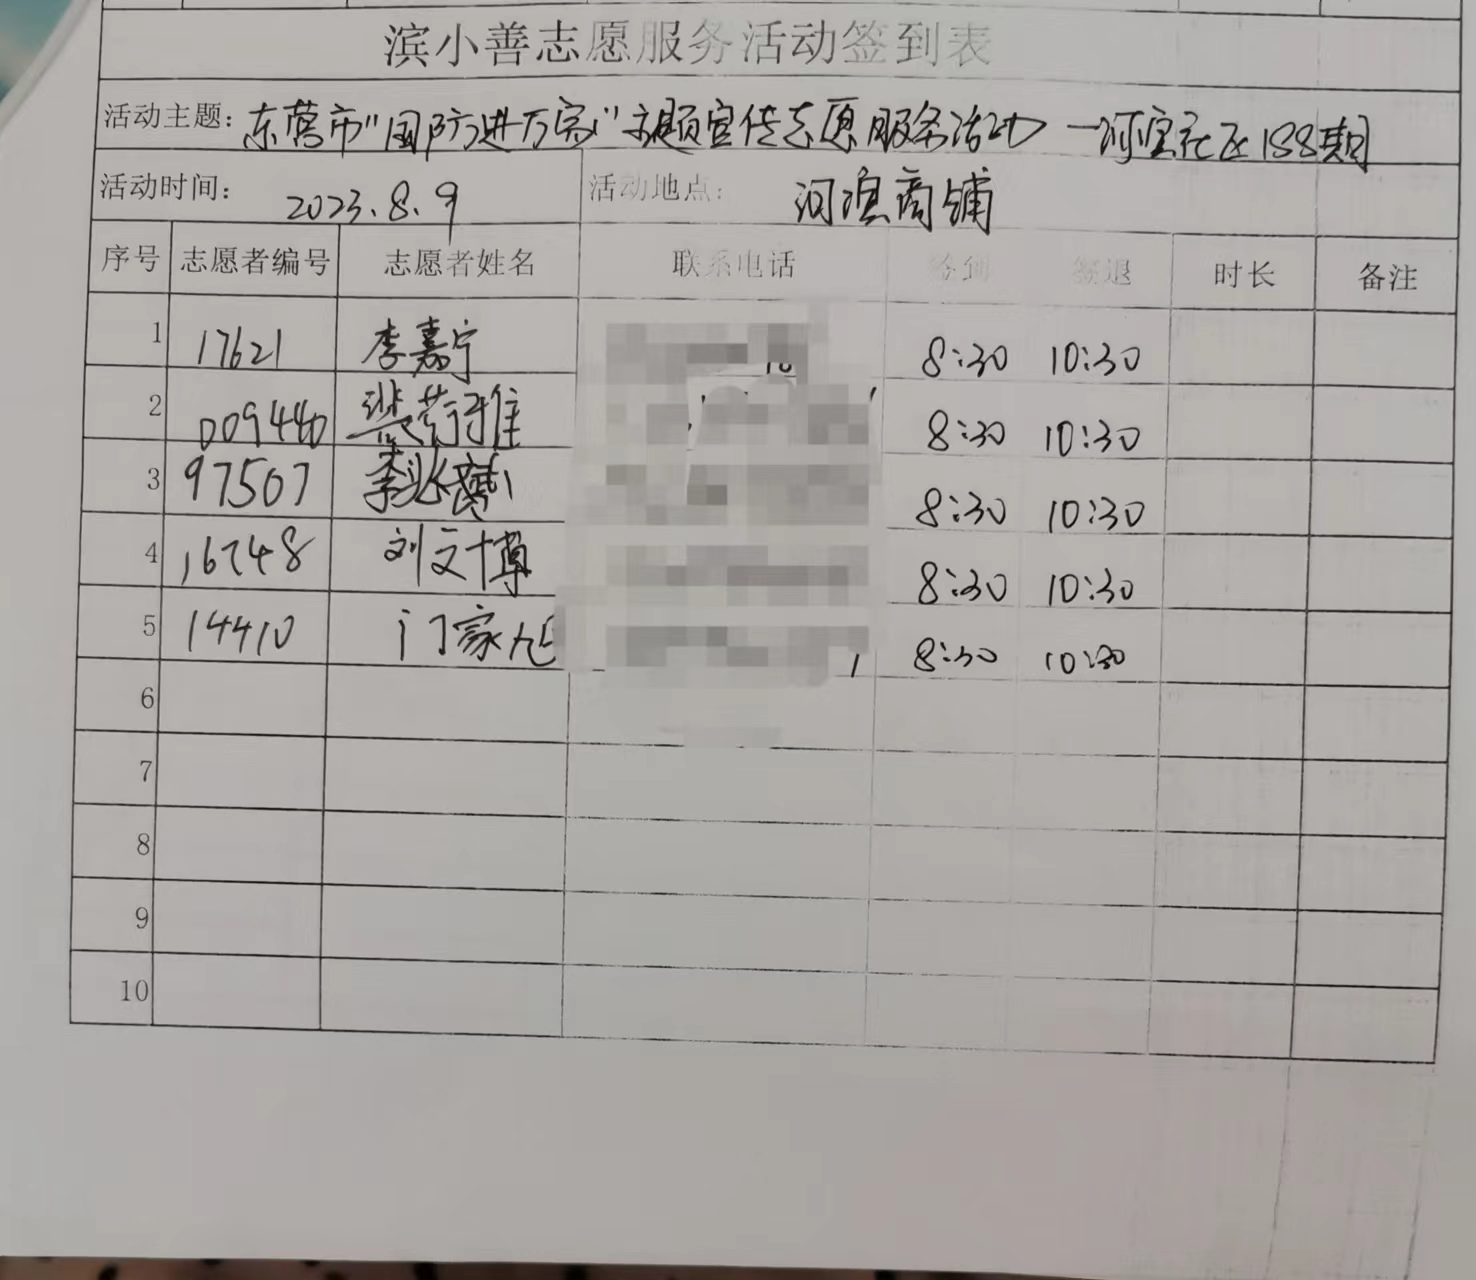 滨小善志愿服务活动签到表
活动主题: 东营市"国防进万家"主题宣传志愿服务活动 一河滨社区188期
活动时间: 2023.8.9 活动地点: 河滨商铺
序号 志愿者编号 志愿者姓名 联系电话 签到 签退 时长 备注
1 17621 李嘉宁 8:30 10:30
2 009440 8:30 10:30
3 97507 李 8:30 10:30
4 16748 刘文博 8:30 10:30
5 14410 门家旭 8:30 10:30
6
7
8
9
10